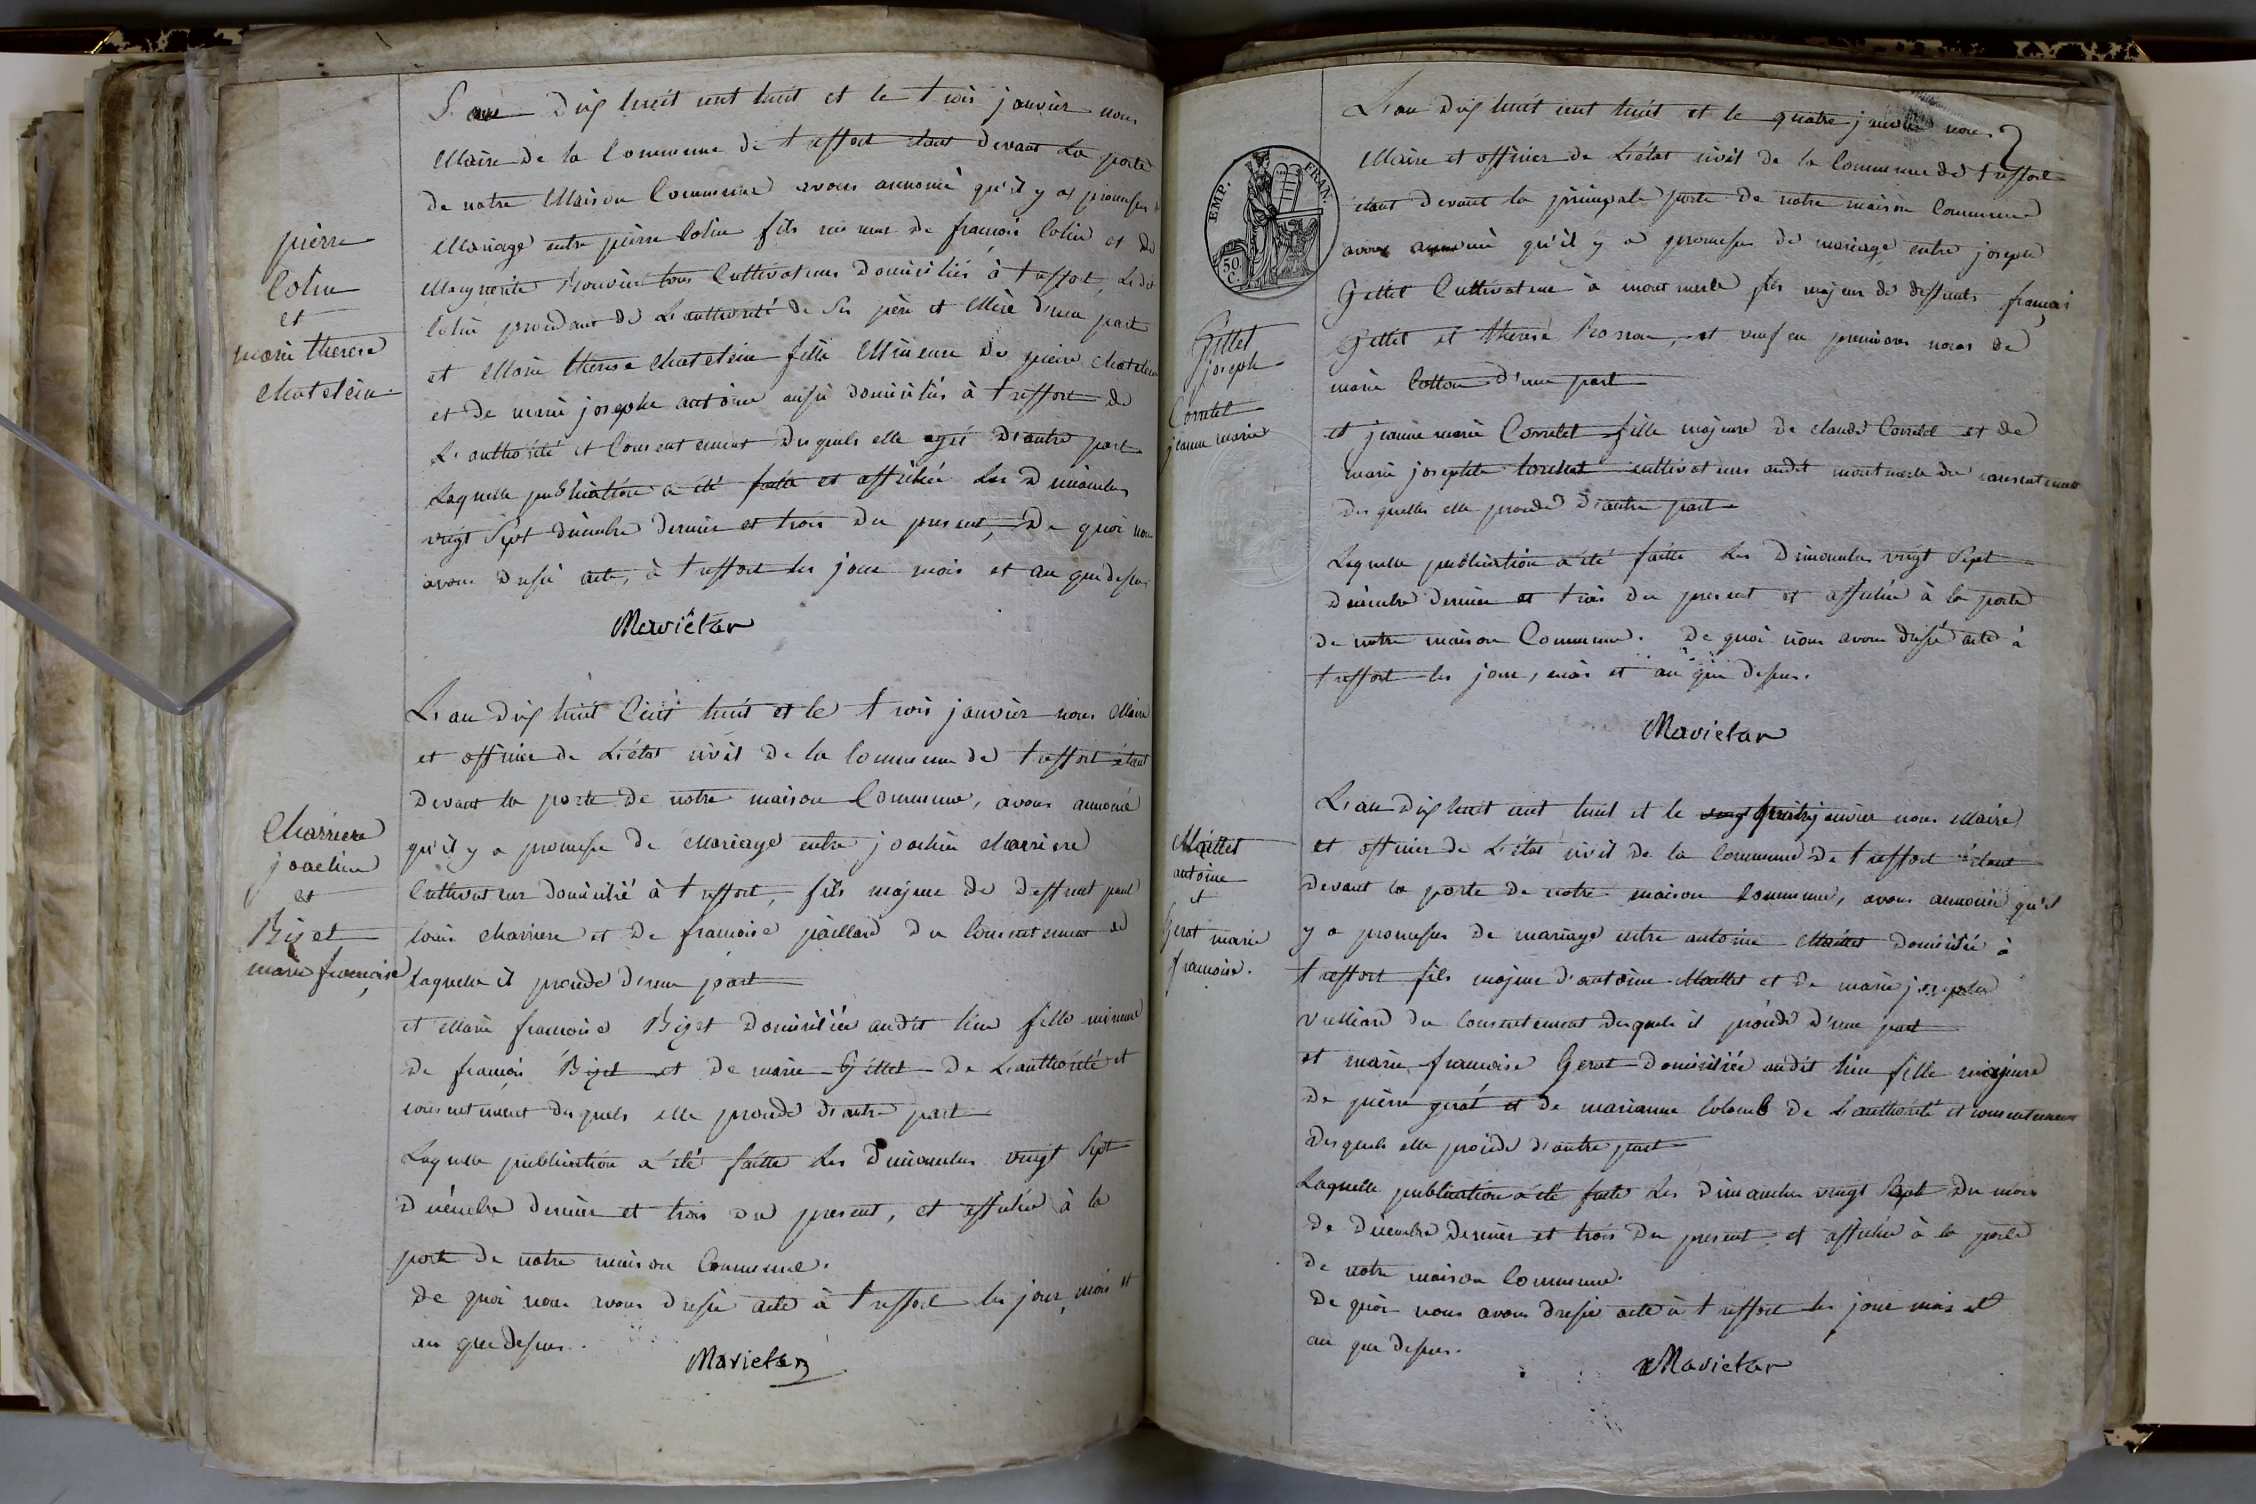 L'an dix huit cent huit et le trois janvier nous
Maire de la Commune de treffort etant devant la porte
de notre Maison Commune avons annoncé qu'il y a promesses de
Mariage entre pierre Colin fils mineur de francois Colin et de
Marguerite Bouvier tous Cultivateurs Domiciliés à treffort, Ledit
Colin procedant de L'authorité de Ses père et Mère d'une part
et Marie therese Chatelein fille Mineure de pierre Chatelein
et de marie josephe antoine aussi domiciliés à treffort de
L'authorité et Consentement desquels elle agit D'autre part
Laquelle publication a été faitte et affichée Les Dimanches
vingt Sept décembre dernier et trois du present, De quoi nous
avons dressé acte, à treffort les jour mois et an que dessus
Mavietar
pierre
Colin
et
marie therese
Chatelein
L'an dix huit Cent huit et le trois janvier nous Maire
et officier de L'état civil de la Commune de treffort étant
devant la porte de notre maison Commune, avons annoncé
qu'il y a promesse de Mariage entre joachin Charriere
Cultivateur domicilié à treffort, fils majeur de deffunt paul
louis Charriere et De francoise paillard du Consentement de
laquelle il procede d'une part
et Marie francoise Bizet Domiciliée audit lieu fille mineure
de francois Bizet et de marie Gillet de L'authorité et
consentement desquels elle procede d'autre part
Laquelle publication a été faitte les Dimanches vingt Sept
Décembre dernier et trois du present, et affichée à la
porte de notre maison Commune.
de quoi nous avons dressé acte à treffort les jour, mois et
an que dessus.
Mavietar
Charriere
joachin
et
Bizet
marie françoise
L'an dix huit cent huit et le quatre janvier nous
Maire et officier de L'état civil de la Commune de treffort
etant devant la principale porte de notre maison Commune
avons annoncé qu'il y a promesses de mariage entre joseph
Gillet Cultivateur à montmerle fils majeur de deffunts françois
Gillet et therese, et veuf en premieres noces de
marie Cotton d'une part
et jeanne marie Corretel fille majeure de claude Corretel et de
marie josephte cultivateurs audit montmerle du consentement
desquelles elle procede d'autre part
Laquelle publication a été faitte les Dimanches vingt Sept
décembre dernier et trois du present et affichée à la porte
de notre maison Commune. De quoi nous avons dressé acte à
treffort les jour, mois et an que dessus.
Mavietar
EMP. FRAN.
50 C.
Gillet
joseph
Corretel
jeanne marie
L'an dix huit cent huit et le quatre janvier nous Maire
et officier de L'état civil de la Commune de treffort étant
devant la porte de notre maison Commune, avons annoncé qu'il
y a promesses de mariage entre antoine Maillet domicilié à
treffort fils majeur d'antoine Maillet et de marie josephe
Vuilliard du Consentement desquels il procede d'une part
et marie francoise Gerat domiciliée audit lieu fille majeure
de pierre gerat et de marianne Colomb de L'authorité et consentement
desquels elle procede d'autre part
Laquelle publication a été faite les dimanches vingt Sept du mois
de décembre dernier et trois du present, et affichée à la porte
de notre maison Commune.
de quoi nous avons dressé acte à treffort les jour mois et
an que dessus.
Mavietar
Maillet
antoine
et
Gerat marie
francoise.